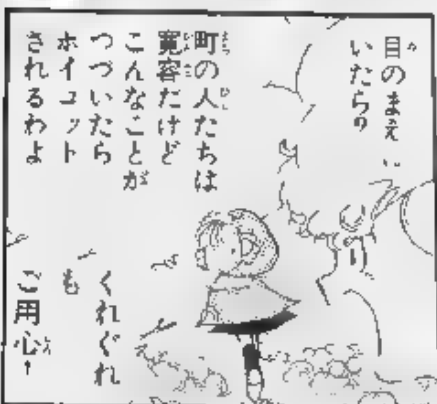 目のまえに
いたらの
町の人たちは
寛容だけど
こんなことが
つづいたら
ホイコット
されるわよ
くれぐれ
も
ご用心!